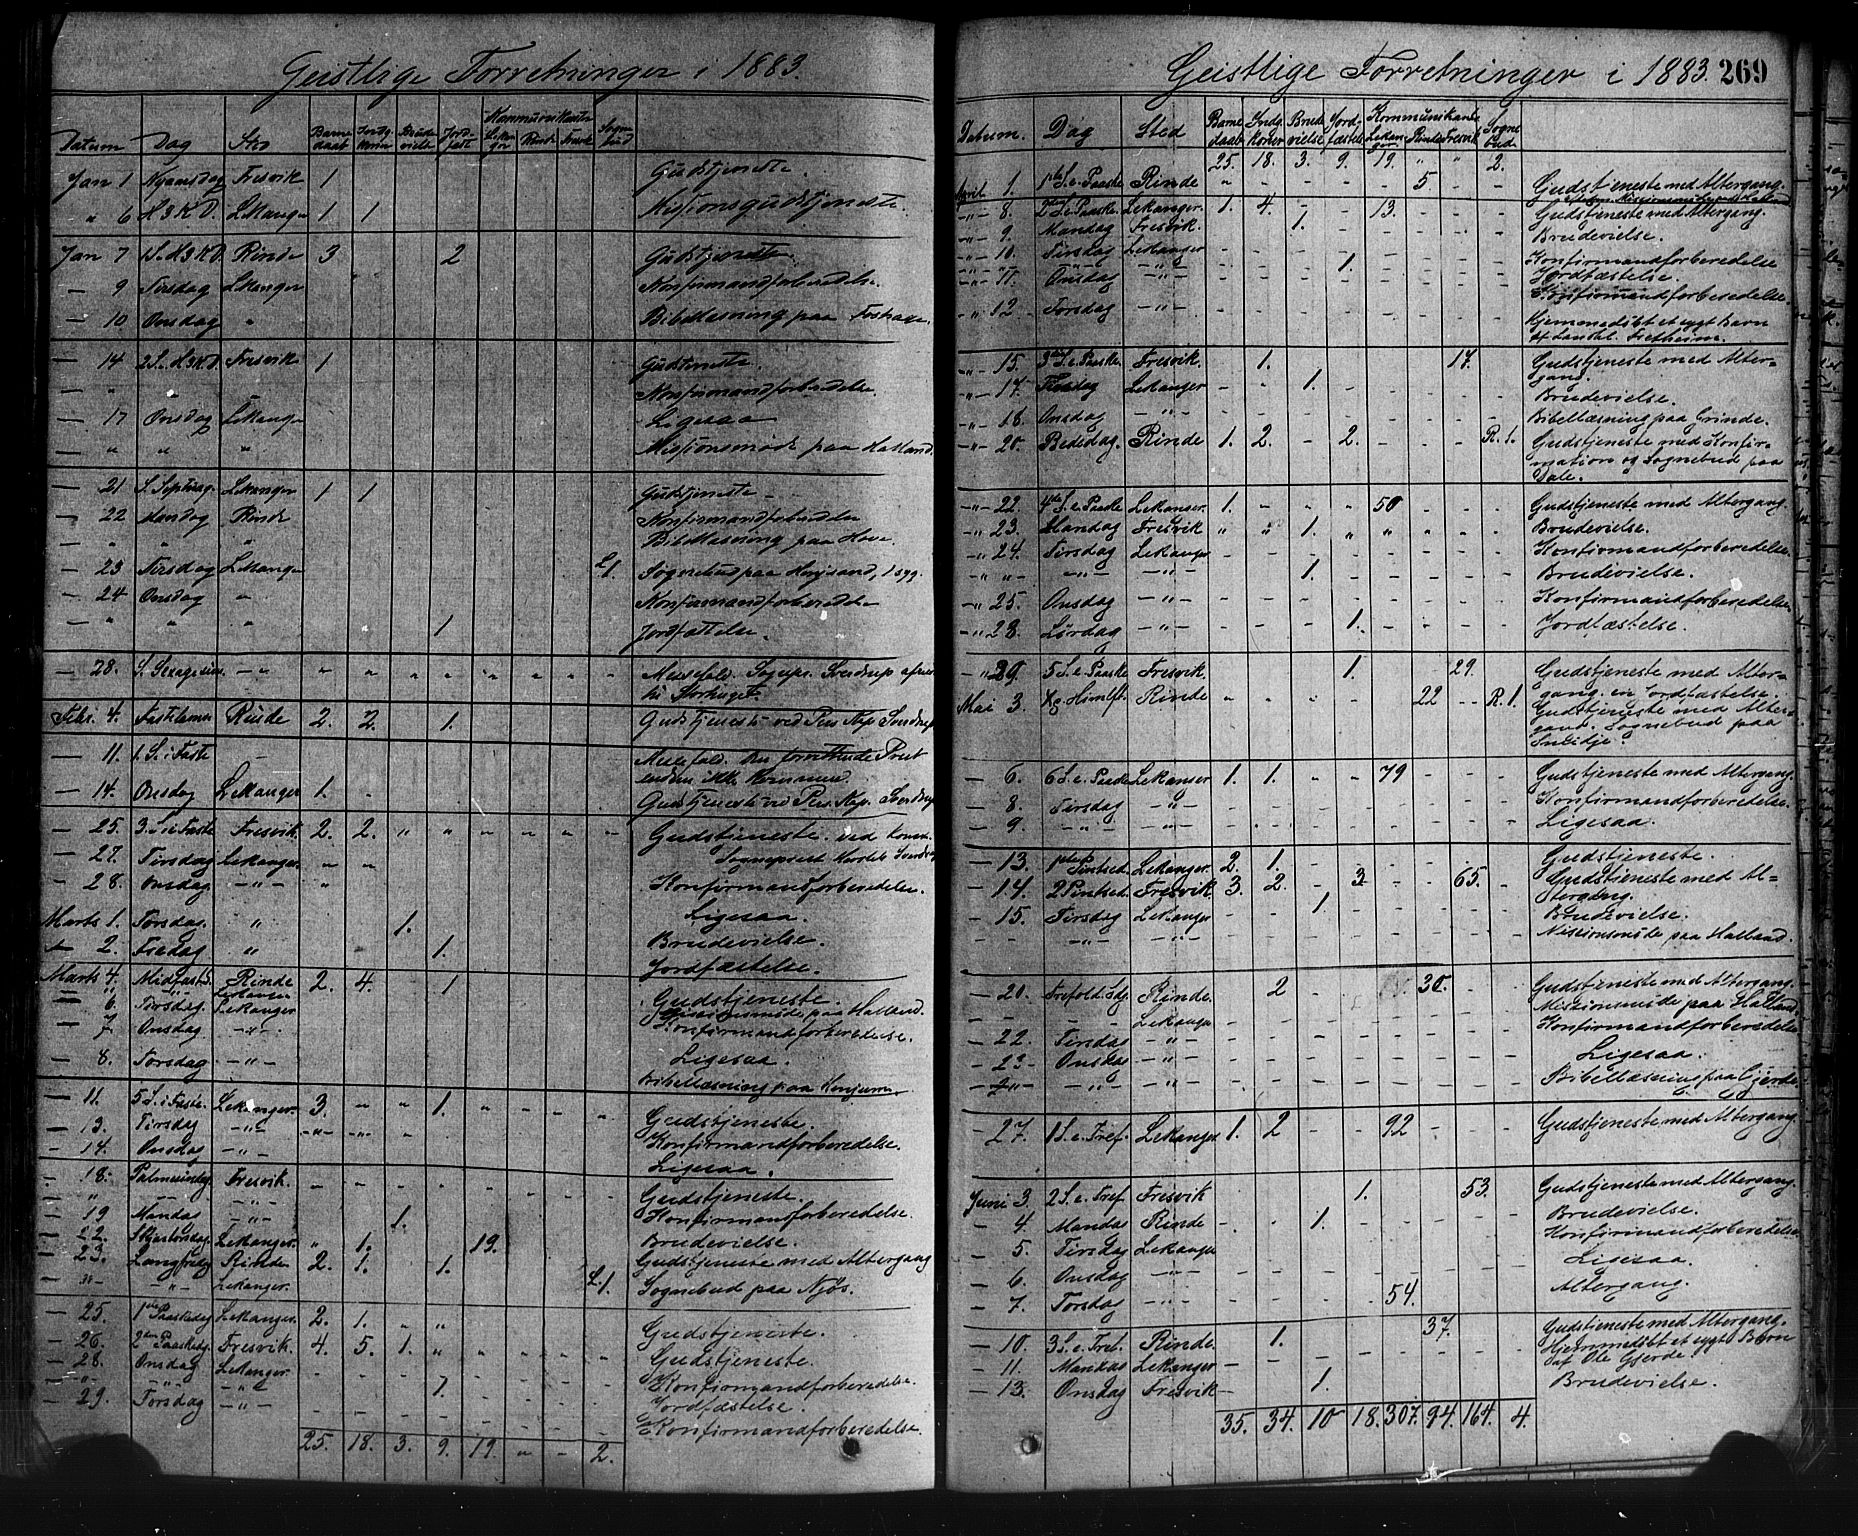 Geistlige Forretninger i 1883.
Kommunikanter
Datum Dag Sted Barne daab Indg. koner Brude vielse Jord- fæst Lekan ger Rinde Fresvik Sogne bud
Jan 1 Nyaarsdag Fresvik 1 Gudstjeneste.
" 6 H 3 K D. Lekanger 1 1 Missionsgudstjeneste
Jan 7 1 S. H 3 K D. Rinde 3 2 Gudstjeneste
— 9 Tirsdag Lekanger Konfirmandforberedelse.
— 10 Onsdag " Bibellæsning paa
— 14 2 S. e. H 3 K D. Fresvik 1 Gudstjeneste.
" Konfirmandforberedelse.
— 17 Onsdag Lekanger Ligesaa
" " " Missionsmøde paa Hatland.
— 21 S. Septuag. Lekanger 1 1 Gudstjeneste —
— 22 Mandag Rinde Konfirmandforberedelse
" " " Bibellæsning paa Hove.
— 23 Tirsdag Lekanger L 1. Sognebud paa 1 syg.
— 24 Onsdag " Konfirmandforberedelse
" " " 1 Jordfæstelse.
— 28. S. Sexagesima — " — " " " " " " " " Messefald. Sognepr. Sverdrup afreist
til Storthinget.
Febr. 4. Fastelavn Rinde 2. 2. 1. Gudstjeneste ved Pers. Kap. Sverdrup
— 11. 1. S. i Faste — Messefald. Den Prest
endnu ikke kommen.
— 14. Onsdag Lekanger 1. Gudstjeneste ved Pers. Kap. Sverdrup
— 25. 3. S. i Faste Fresvik. 2. 2. " " " " " " Gudstjeneste. ved Konst.
Sogneprest Sverdrup
— 27. Tirsdag Lekanger. " "
— 28. Onsdag. — " — " Konfirmandforberedelse.
Marts 1. Torsdag. " 1. Ligesaa.
— 2. Fredag " 1. Brudevielse.
Jordfæstelse.
Marts 4. Midfast S. Rinde 2. 4. 1 Gudstjeneste.
— " " Lekanger Missionsmøde paa Hatland.
— 6. Tirsdag. Lekanger Konfirmandforberedelse.
— 7. Onsdag — " — Ligesaa.
— 8. Torsdag — " — Bibellæsning paa Henjum.
— 11. 5 S. i Faste. Lekanger. 3. " " 1. " " " " Gudstjeneste.
— 13. Tirsdag — " — — " — — " — " Konfirmandforberedelse.
— 14. Onsdag — " — Ligesaa.
— 18. Palmesøndag. Fresvik. - - - - - - - - Gudstjeneste.
— " " — " — Konfirmandforberedelse.
— 19 Mandag — " — 1. Brudevielse.
— 22. Skjærtorsdag. Lekanger. " 1. 19. Gudstjeneste med Altergang
— 23. Langfredag Rinde 2. 1. 1.
— " — — " — Lekanger. L. 1. Sognebud paa Njøs.
— 25. 1ste Paaskedag Lekanger. 2. 1. " " Gudstjeneste.
— 26. 2den Paaskedg. Fresvik. 4. 5. 1. " " " " " Gudstjeneste.
— 28. Onsdag Lekanger - - - - - - - - Konfirmandforberedelse.
— " — " — — " — 1. Jordfæstelse.
— 29. Torsdag — " — - - - - - - - - Konfirmandforberedelse.
25. 18. 3. 9. 19. " - 2.
Geistlige Forretninger i 1883. 269
Datum. Dag Sted Barne daab Indg. koner Brude vielse Jord- fæstelse Kommunikanter Lekan ger Rinde Fresvik Sogne bud
25. 18. 3. 9. 19. " " 2.
April 1. 1ste S. e. Paaske Rinde - - - - - 5. - - Gudstjeneste med Altergang.
— " — 8. 2den S. e. Paaske. Lekanger. 1. 4. - - 13. - - Gudstjeneste med Altergang.
— " — 9. Mandag Fresvik. 1. Brudevielse.
— " — 10. Tirsdag Lekanger Konfirmandforberedelse
— " — " — — " — — " — 1. Jordfæstelse.
— " — 11. Onsdag — " — Konfirmandforberedelse.
— " — 12 Torsdag — " — Hjemmedøbt et sygt Barn
af Fretheim.
— " — 15. 3die S. e. Paaske. Fresvik. 1. 17. Gudstjeneste med Alter-
gang.
— " — 17. Tirsdag Lekanger - - 1. - - - Brudevielse.
— " — 18. Onsdag — " — - - - - - - - - Bibellæsning paa Grinde.
— " — 20. Bededag. Rinde 1. 2. - 2. - - - R. 1. Gudstjeneste med Konfir-
mation og Sognebud paa
Dale.
— " — 22. 4de S. e. Paaske Lekanger. 1. - - - 50 - - - Gudstjeneste med Altergang
— " — 23. Mandag Fresvik " " 1. " " " " " Brudevielse.
— " — 24. Tirsdag Lekanger Konfirmandforberedelse.
— " — " — — " — — " — 1. - - - - - Brudevielse.
— " — 25. Onsdag — " — - - - - - - - - Konfirmandforberedelse
— " — 28. Lørdag — " — 1. - - - - Jordfæstelse.
— " — 29. 5 S. e. Paaske Fresvik. 1. 29. Gudstjeneste med Alter-
gang. en Jordfæstelse.
Mai 3. Kr. Himlft. Rinde - - - - - 22 - - R. 1. Gudstjeneste med Alter-
gang. Sognebud paa
— 6. 6 S. e. Paaske Lekanger 1. 1. - - 79 - - - Gudstjeneste med Altergang.
— 8. Tirsdag — " — - - - - - - - - Konfirmandforberedelse.
— 9. — " — — " — - - - - - - - - Ligesaa.
— 13. 1ste Pintsed. Lekanger. 2. 1. Gudstjeneste.
— 14. 2 Pintsed. Fresvik. 3. 2. - 3 - - 65. - Gudstjeneste med Al-
tergang.
— 15. Tirsdag Lekanger - - 1. - - - - - Brudevielse.
- — " — — " — - - - - - - - - Missionsmøde paa Hatland.
— 20. Trefold. Sdg. Rinde. 2 - 30. - - Gudstjeneste med Altergang.
- Lekanger - - - - - - - - Missionsmøde paa Hatland.
— 22. Tirsdag — " — - - - - - - - - Konfirmandforberedelse
— 23 — Onsdag — " — - - - - - - - - Ligesaa.
— " — — " — — " — - - - - - - - - Bibellæsning paa Gjerde.
— 27. 1 S. e. Tref. Lekanger. 1. 2 - - 92 - - - Gudstjeneste med Altergang.
Juni 3. 2 S. e. Tref. Fresvik 1. 53. Gudstjeneste med Altergang.
— 4. Mandag Rinde - - 1. - - - - - Brudevielse.
— 5. Tirsdag Lekanger Konfirmandforberedelse
— 6. Onsdag — " — - - - - - - - - Ligesaa.
— 7. Torsdag — " — 54. Altergang.
— 10. 3 S. e. Tref. Rinde. 1. 37. Gudstjeneste med Altergang.
— 11. Mandag Lekanger - - - - - - - - Hjemmedøbt et sygt Barn
af Ole Gjerde.
— 13. Onsdag Fresvik — 1. Brudevielse.
35. 34. 10 18. 307. 94. 164. 4.